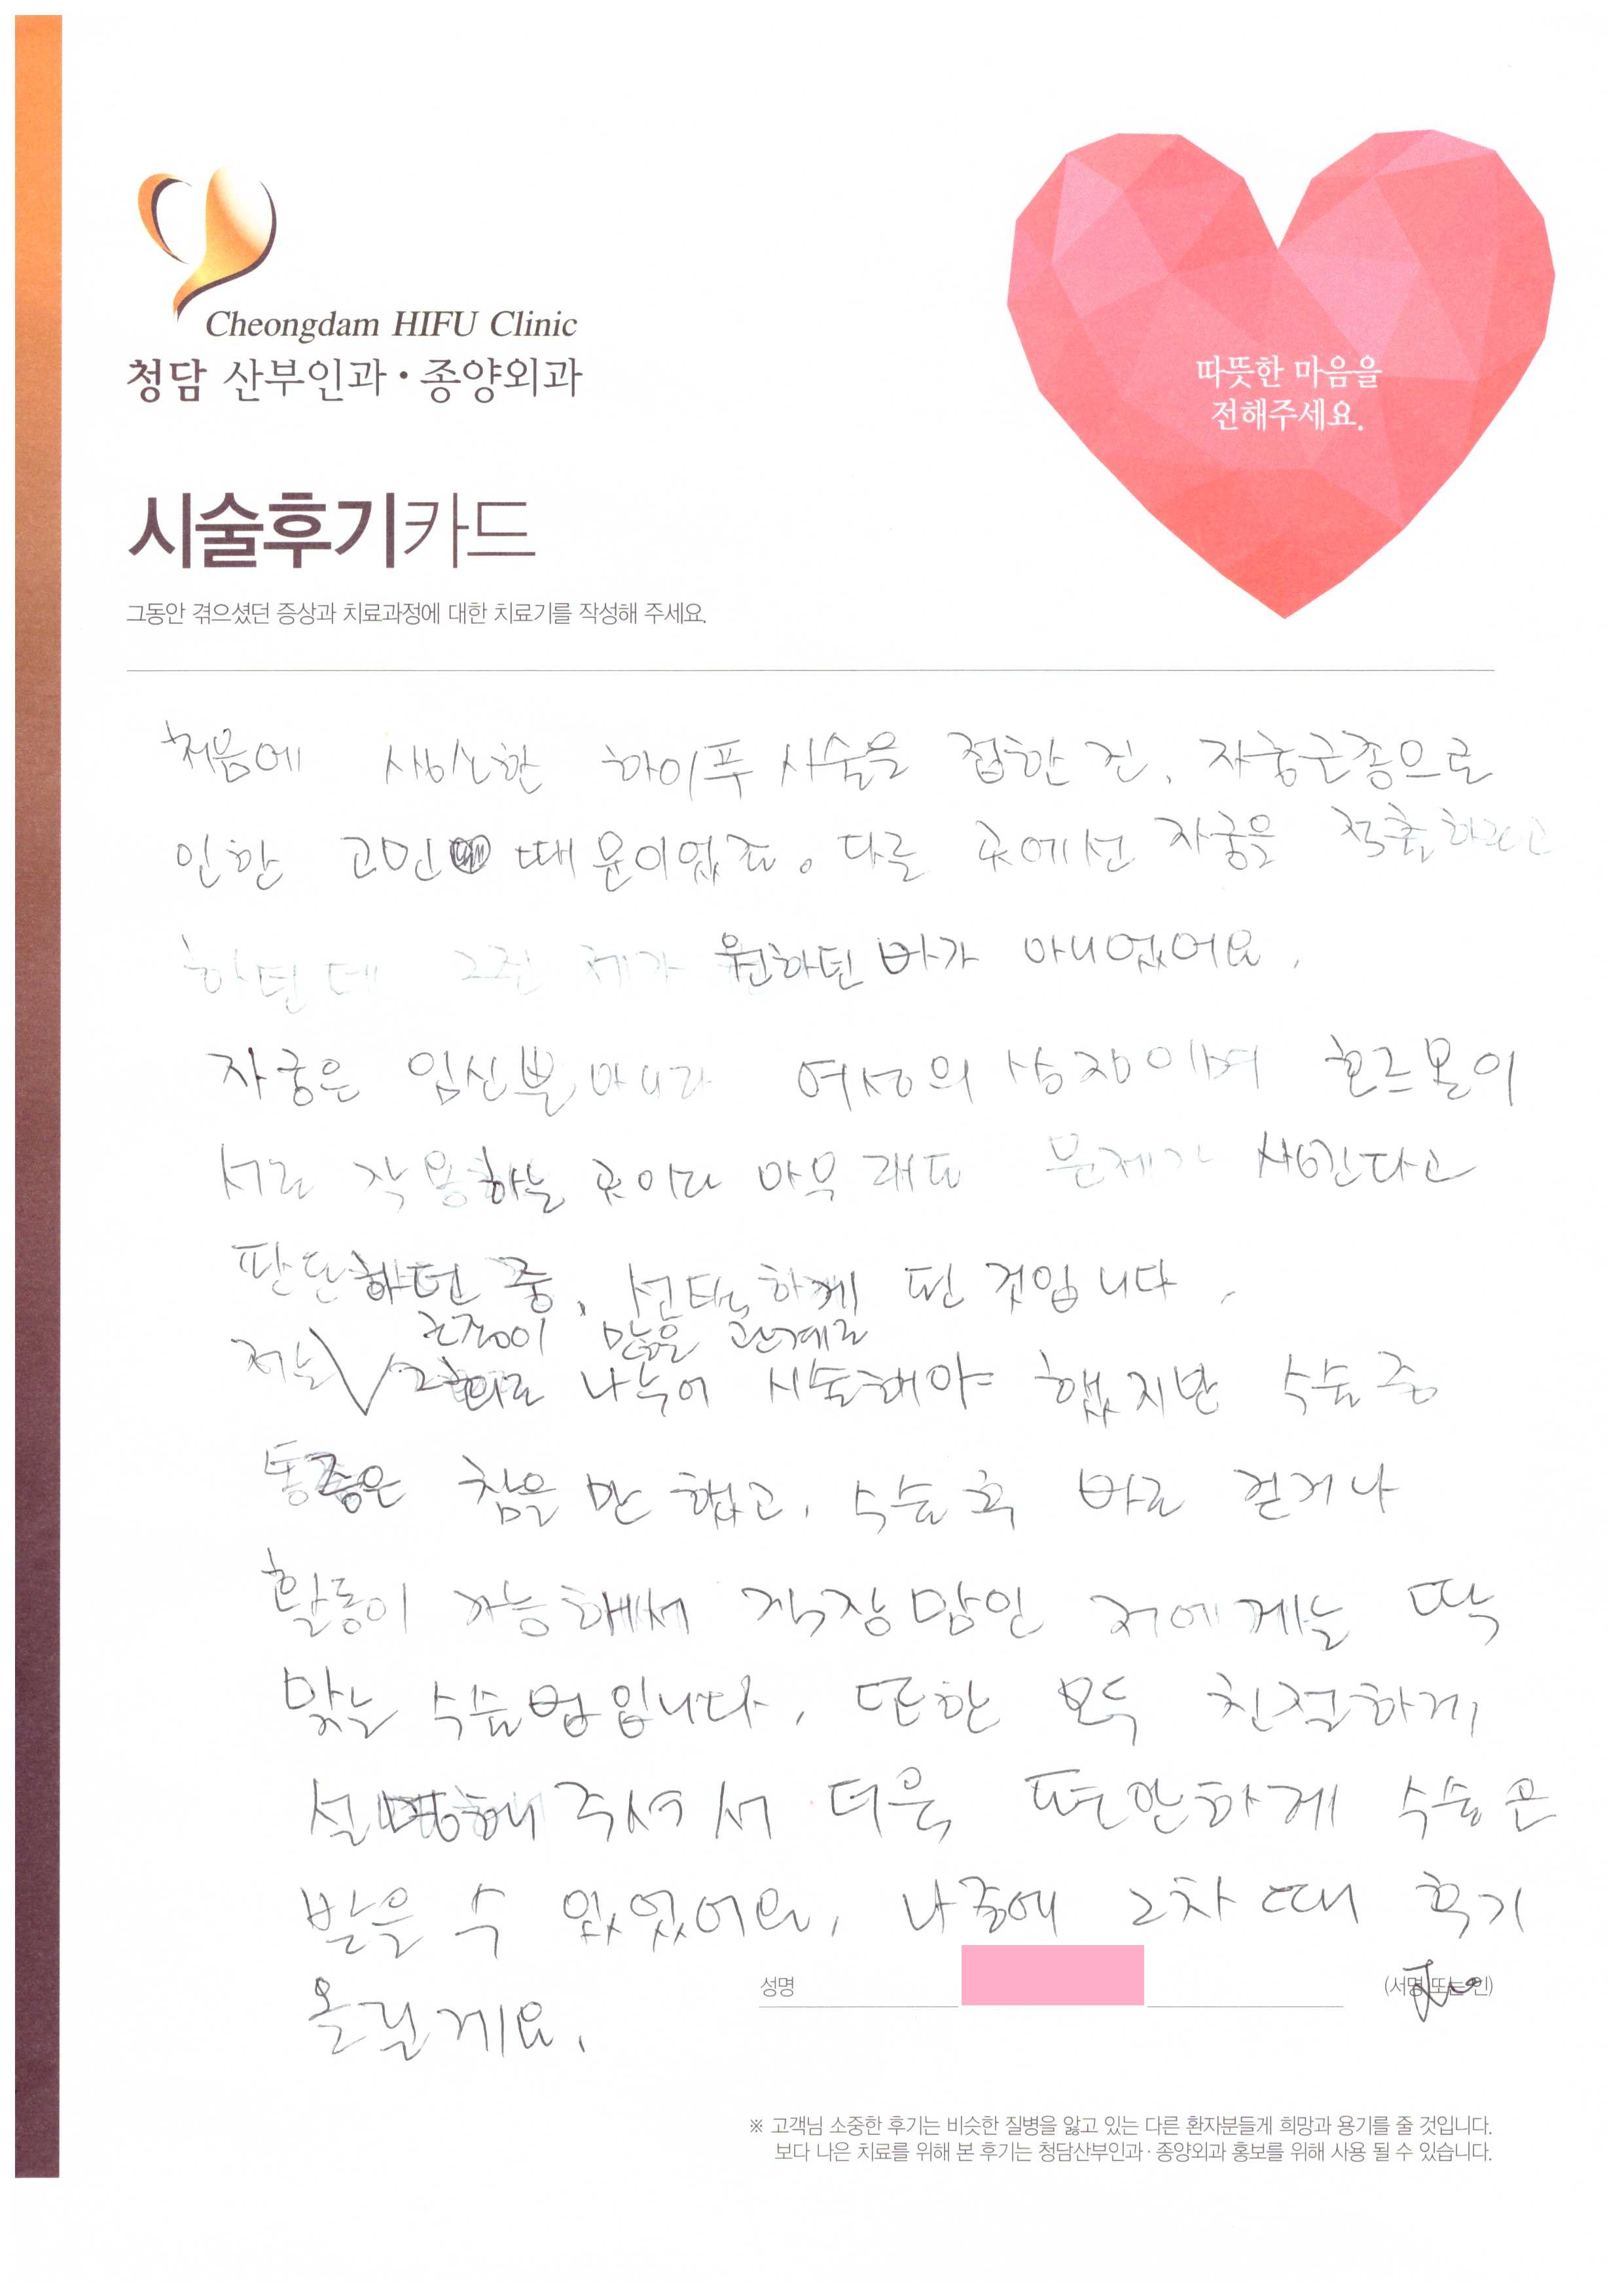 Cheongdam HIFU Clinic
청담 산부인과·종양외과
따뜻한 마음을
전해주세요.
시술후기카드
그동안 겪으셨던 증상과 치료과정에 대한 치료기를 작성해 주세요.
처음에 생소한 하이푸 시술을 접한 건, 자궁근종으로
인한 고민 때문이었죠. 다른 곳에선 자궁을 적출하라고
하던데 그건 제가 원하던 바가 아니었어요.
자궁은 임신뿐 아니라 여성의 상징이며 호르몬이
서로 작용하는 곳이라 아무래도 문제가 생긴다고
판단하던 중, 선택하게 된 것입니다.
근종이 많은 관계로
저는 2회로 나누어 시술해야 했지만 수술 중
통증은 참을 만 했고, 수술 후 바로 걷거나
활동이 가능해서 직장맘인 저에게는 딱
맞는 수술법입니다. 또한 모두 친절하게
설명해 주셔서 더욱 편안하게 수술
받을 수 있었어요. 나중에 2차 때 후기
올릴게요.
성명
(서명 또는 인)
※ 고객님 소중한 후기는 비슷한 질병을 앓고 있는 다른 환자분들게 희망과 용기를 줄 것입니다.
보다 나은 치료를 위해 본 후기는 청담산부인과·종양외과 홍보를 위해 사용 될 수 있습니다.